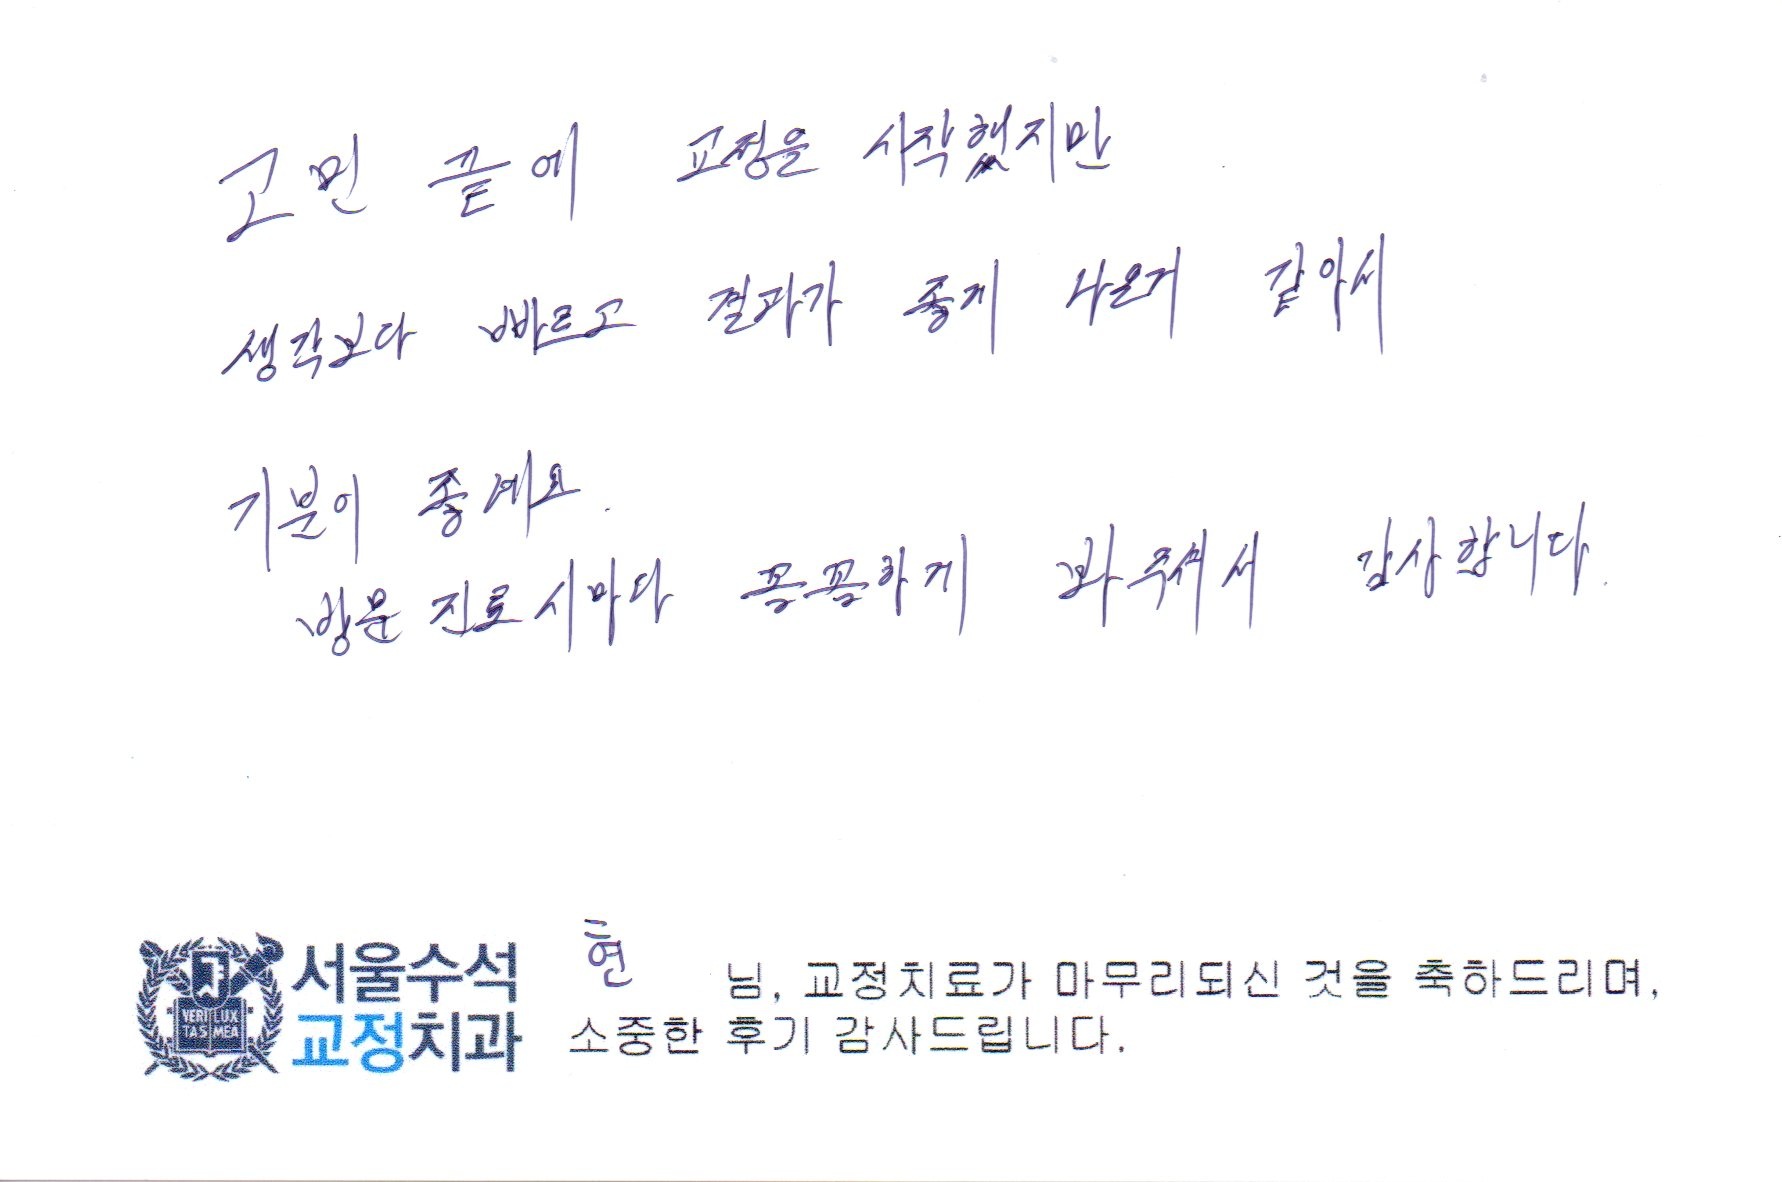 고민 끝에 교정을 시작했지만
생각보다 빠르고 결과가 좋게 나온거 같아서
기분이 좋네요.
방문 진료시마다 꼼꼼하게 봐주셔서 감사합니다.
서울수석
교정치과
VERI LUX
TAS MEA
현 님, 교정치료가 마무리되신 것을 축하드리며,
소중한 후기 감사드립니다.